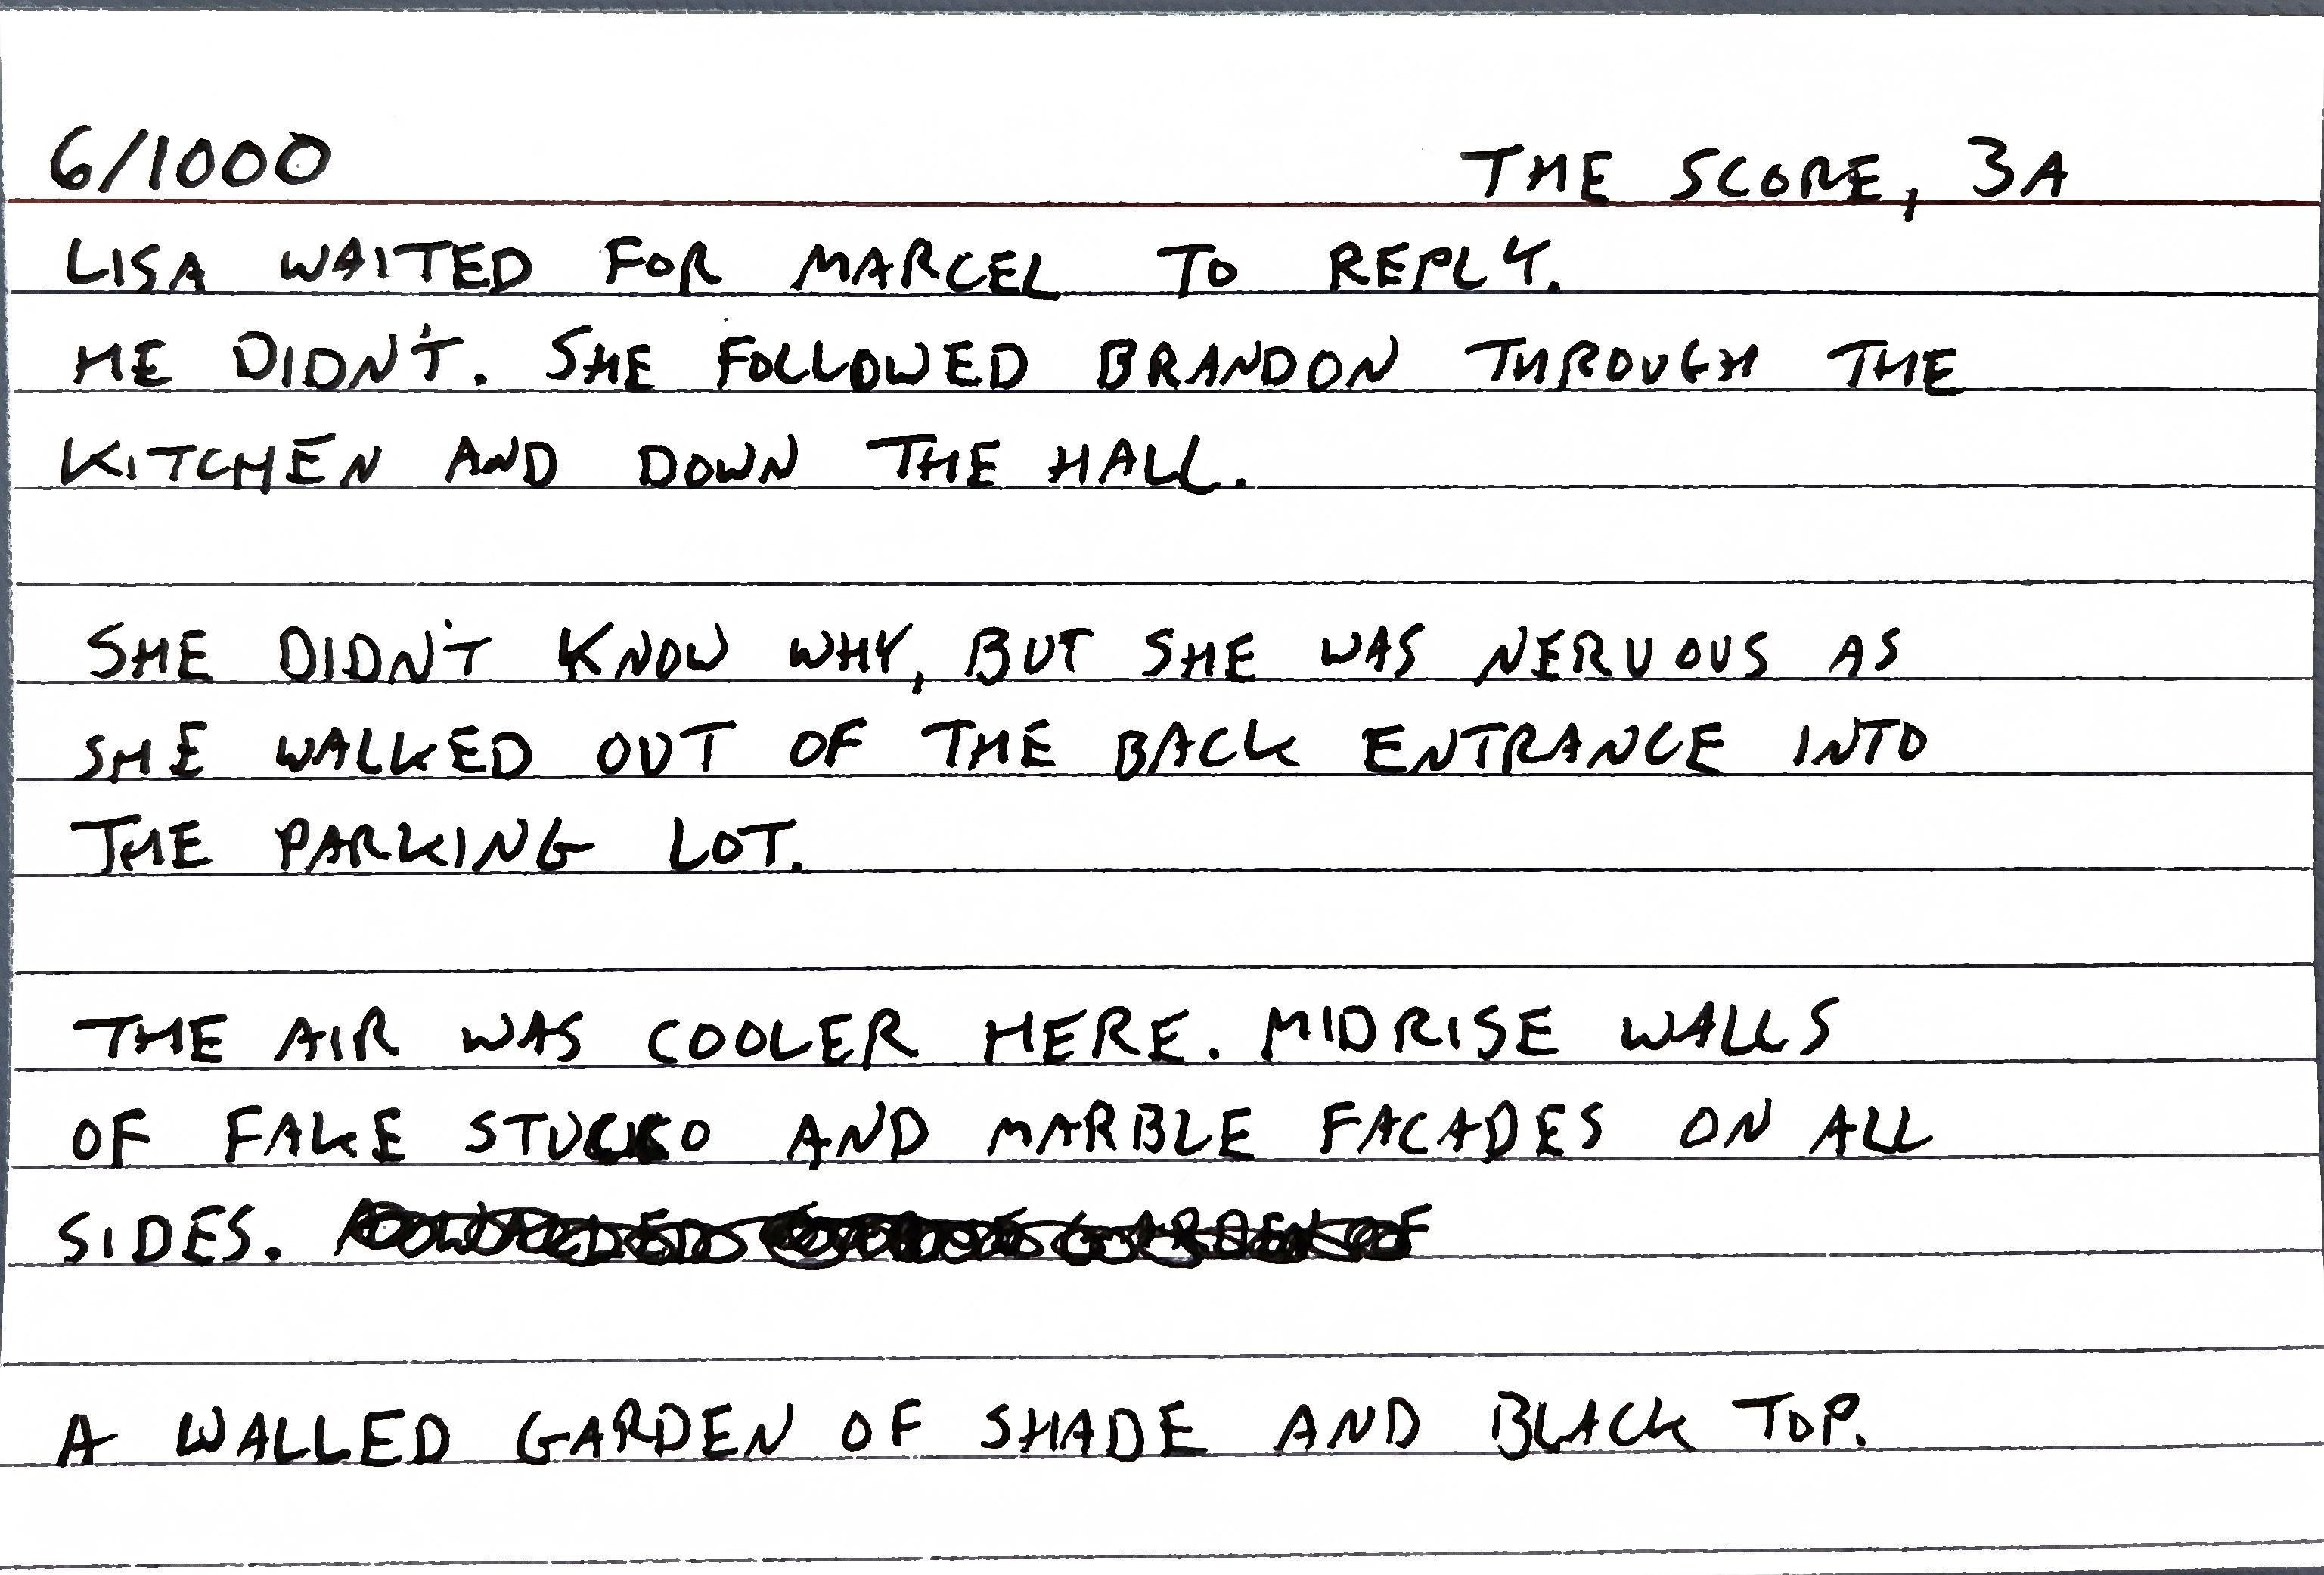 6/1000 THE SCORE, 3A
LISA WAITED FOR MARCEL TO REPLY.
HE DIDN'T. SHE FOLLOWED BRANDON THROUGH THE
KITCHEN AND DOWN THE HALL.
SHE DIDN'T KNOW WHY, BUT SHE WAS NERVOUS AS
SHE WALKED OUT OF THE BACK ENTRANCE INTO
THE PARKING LOT.
THE AIR WAS COOLER HERE. MIDRISE WALLS
OF FAKE STUCCO AND MARBLE FACADES ON ALL
SIDES.
A WALLED GARDEN OF SHADE AND BLACK TOP.